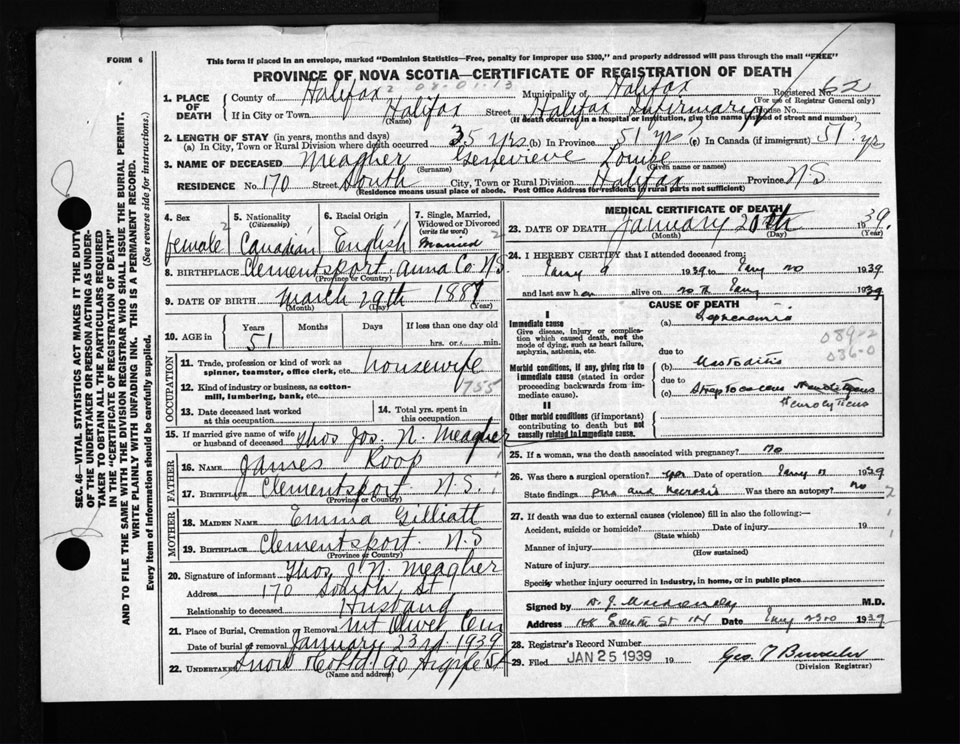 FORM 6
This form if placed in an envelope, marked "Dominion Statistics—Free, penalty for improper use $300," and properly addressed will pass through the mail "FREE"
PROVINCE OF NOVA SCOTIA—CERTIFICATE OF REGISTRATION OF DEATH
1. PLACE OF DEATH
County of Halifax Municipality of Halifax Registered No. 62
(For use of Registrar General only)
If in City or Town Halifax Street Halifax Infirmary House No.
(Name) (If death occurred in a hospital or institution, give the name instead of street and number)
2. LENGTH OF STAY (in years, months and days)
(a) In City, Town or Rural Division where death occurred 35 yrs (b) In Province 51 yrs (c) In Canada (if immigrant) 51 yrs
3. NAME OF DECEASED Meagher Genevieve Louise
(Surname) (Given name or names)
RESIDENCE No. 170 Street South City, Town or Rural Division Halifax Province NS
(Residence means usual place of abode. Post Office Address for residents in rural parts not sufficient)
4. Sex female
5. Nationality (Citizenship) Canadian
6. Racial Origin English
7. Single, Married, Widowed or Divorced (write the word) Married
8. BIRTHPLACE Clementsport Anna Co N.S.
(Province or Country)
9. DATE OF BIRTH March 29th 1887
(Month) (Day) (Year)
10. AGE in Years Months Days If less than one day old
51 hrs. or min.
OCCUPATION
11. Trade, profession or kind of work as spinner, teamster, office clerk, etc. housewife
12. Kind of industry or business, as cotton-mill, lumbering, bank, etc. 755
13. Date deceased last worked at this occupation
14. Total yrs. spent in this occupation
15. If married give name of wife or husband of deceased Thos Jos. N. Meagher
FATHER
16. NAME James Roop
17. BIRTHPLACE Clementsport N.S.
(Province or Country)
MOTHER
18. MAIDEN NAME Emma Gilliatt
19. BIRTHPLACE Clementsport N.S
(Province or Country)
20. Signature of informant Thos J. N. Meagher
Address 170 South St
Relationship to deceased Husband
21. Place of Burial, Cremation or Removal Mt Olivet Cem
Date of burial or removal January 23rd 1939
22. Undertaker Snow & Co Ltd 90 Argyle St
(Name and address)
MEDICAL CERTIFICATE OF DEATH
23. DATE OF DEATH January 20th 1939
(Month) (Day) (Year)
24. I HEREBY CERTIFY that I attended deceased from:
Jany 9 1939 to Jany 20 1939
and last saw her alive on 20 th Jany 1939
CAUSE OF DEATH
I
Immediate cause
Give disease, injury or complication which caused death, not the mode of dying, such as heart failure, asphyxia, asthenia, etc.
(a) Septicaemia
089-2
036-0
due to
Morbid conditions, if any, giving rise to immediate cause (stated in order proceeding backwards from immediate cause).
(b) Mastoiditis
due to
(c) Streptococcus
II
Other morbid conditions (if important) contributing to death but not causally related to immediate cause.
25. If a woman, was the death associated with pregnancy? no
26. Was there a surgical operation? yes Date of operation Jany 1939
State findings pus and necrosis Was there an autopsy? No
27. If death was due to external causes (violence) fill in also the following:—
Accident, suicide or homicide? Date of injury 19
(State which)
Manner of injury
(How sustained)
Nature of injury
Specify whether injury occurred in industry, in home, or in public place
Signed by M.D.
Address 168 South St Date Jany 1939
28. Registrar's Record Number
29. Filed JAN 25 1939 19
(Division Registrar)
SEC. 46—VITAL STATISTICS ACT MAKES IT THE DUTY OF THE UNDERTAKER OR PERSON ACTING AS UNDERTAKER TO OBTAIN ALL THE PARTICULARS REQUIRED IN THE "CERTIFICATE OF REGISTRATION OF DEATH" AND TO FILE THE SAME WITH THE DIVISION REGISTRAR WHO SHALL ISSUE THE BURIAL PERMIT.
WRITE PLAINLY WITH UNFADING INK. THIS IS A PERMANENT RECORD.
Every item of information should be carefully supplied. (See reverse side for instructions.)